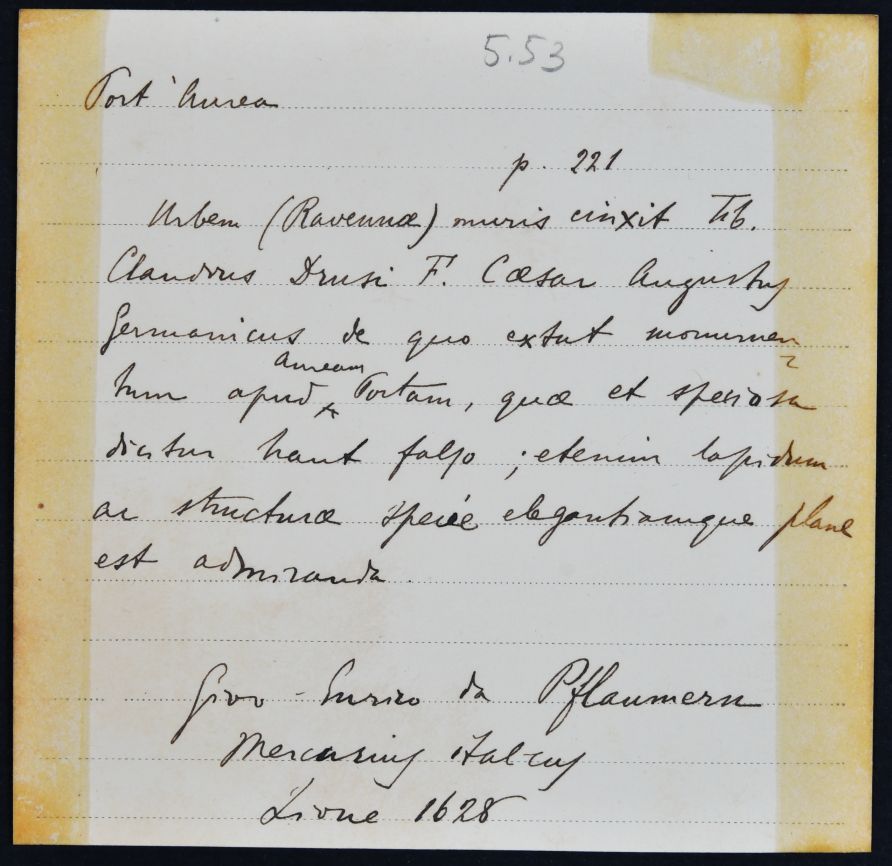 5.53
Port' Aurea
p. 221
Urbem (Ravennæ) muris cinxit Tib.
Claudius Drusi F. Cæsar Augustus
Germanicus de quo extat monumen
tum apud auream Portam, quæ et speciosa
dicitur haut falso ; etenim lapidum
ac structuræ specie elegantiamque plane
est admiranda.
Giov - Enrico da Pflaumern
Mercurius Italicus
Lione 1628